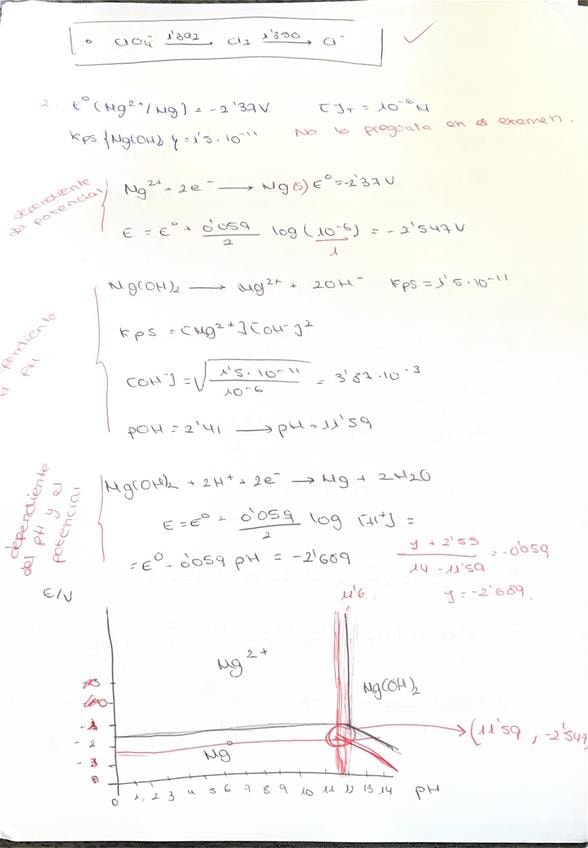 • ClO4⁻ 1'392→ Cl2 1'390→ Cl⁻
2. E⁰(Mg²⁺/Mg) = -2'37V [ ]T = 10⁻⁶M
Kps {Mg(OH)2} = 1'5·10⁻¹¹ No lo pregunta en el examen.
dependiente del potencial
Mg²⁺ + 2e⁻ → Mg(s) E⁰=-2'37V
E = E⁰ + 0'059/2 log (10⁻⁶)/1 = -2'547V
dependiente pH
Mg(OH)2 → Mg²⁺ + 2OH⁻ Kps = 1'5·10⁻¹¹
Kps = [Mg²⁺][OH⁻]²
[OH⁻] = √(1'5·10⁻¹¹/10⁻⁶) = 3'87·10⁻³
pOH = 2'41 → pH = 11'59
dependiente del pH y el potencial
Mg(OH)2 + 2H⁺ + 2e⁻ → Mg + 2H2O
E = E⁰ + 0'059/2 log [H⁺] =
= E⁰ - 0'059 pH = -2'689
y + 2'55/14 - 11'59 = -0'059
y = -2'689.
E/V
11'6.
Mg²⁺
Mg(OH)2
-1
-2
-3
Mg
(11'59, -2'547
0 1 2 3 4 5 6 7 8 9 10 11 12 13 14 pH